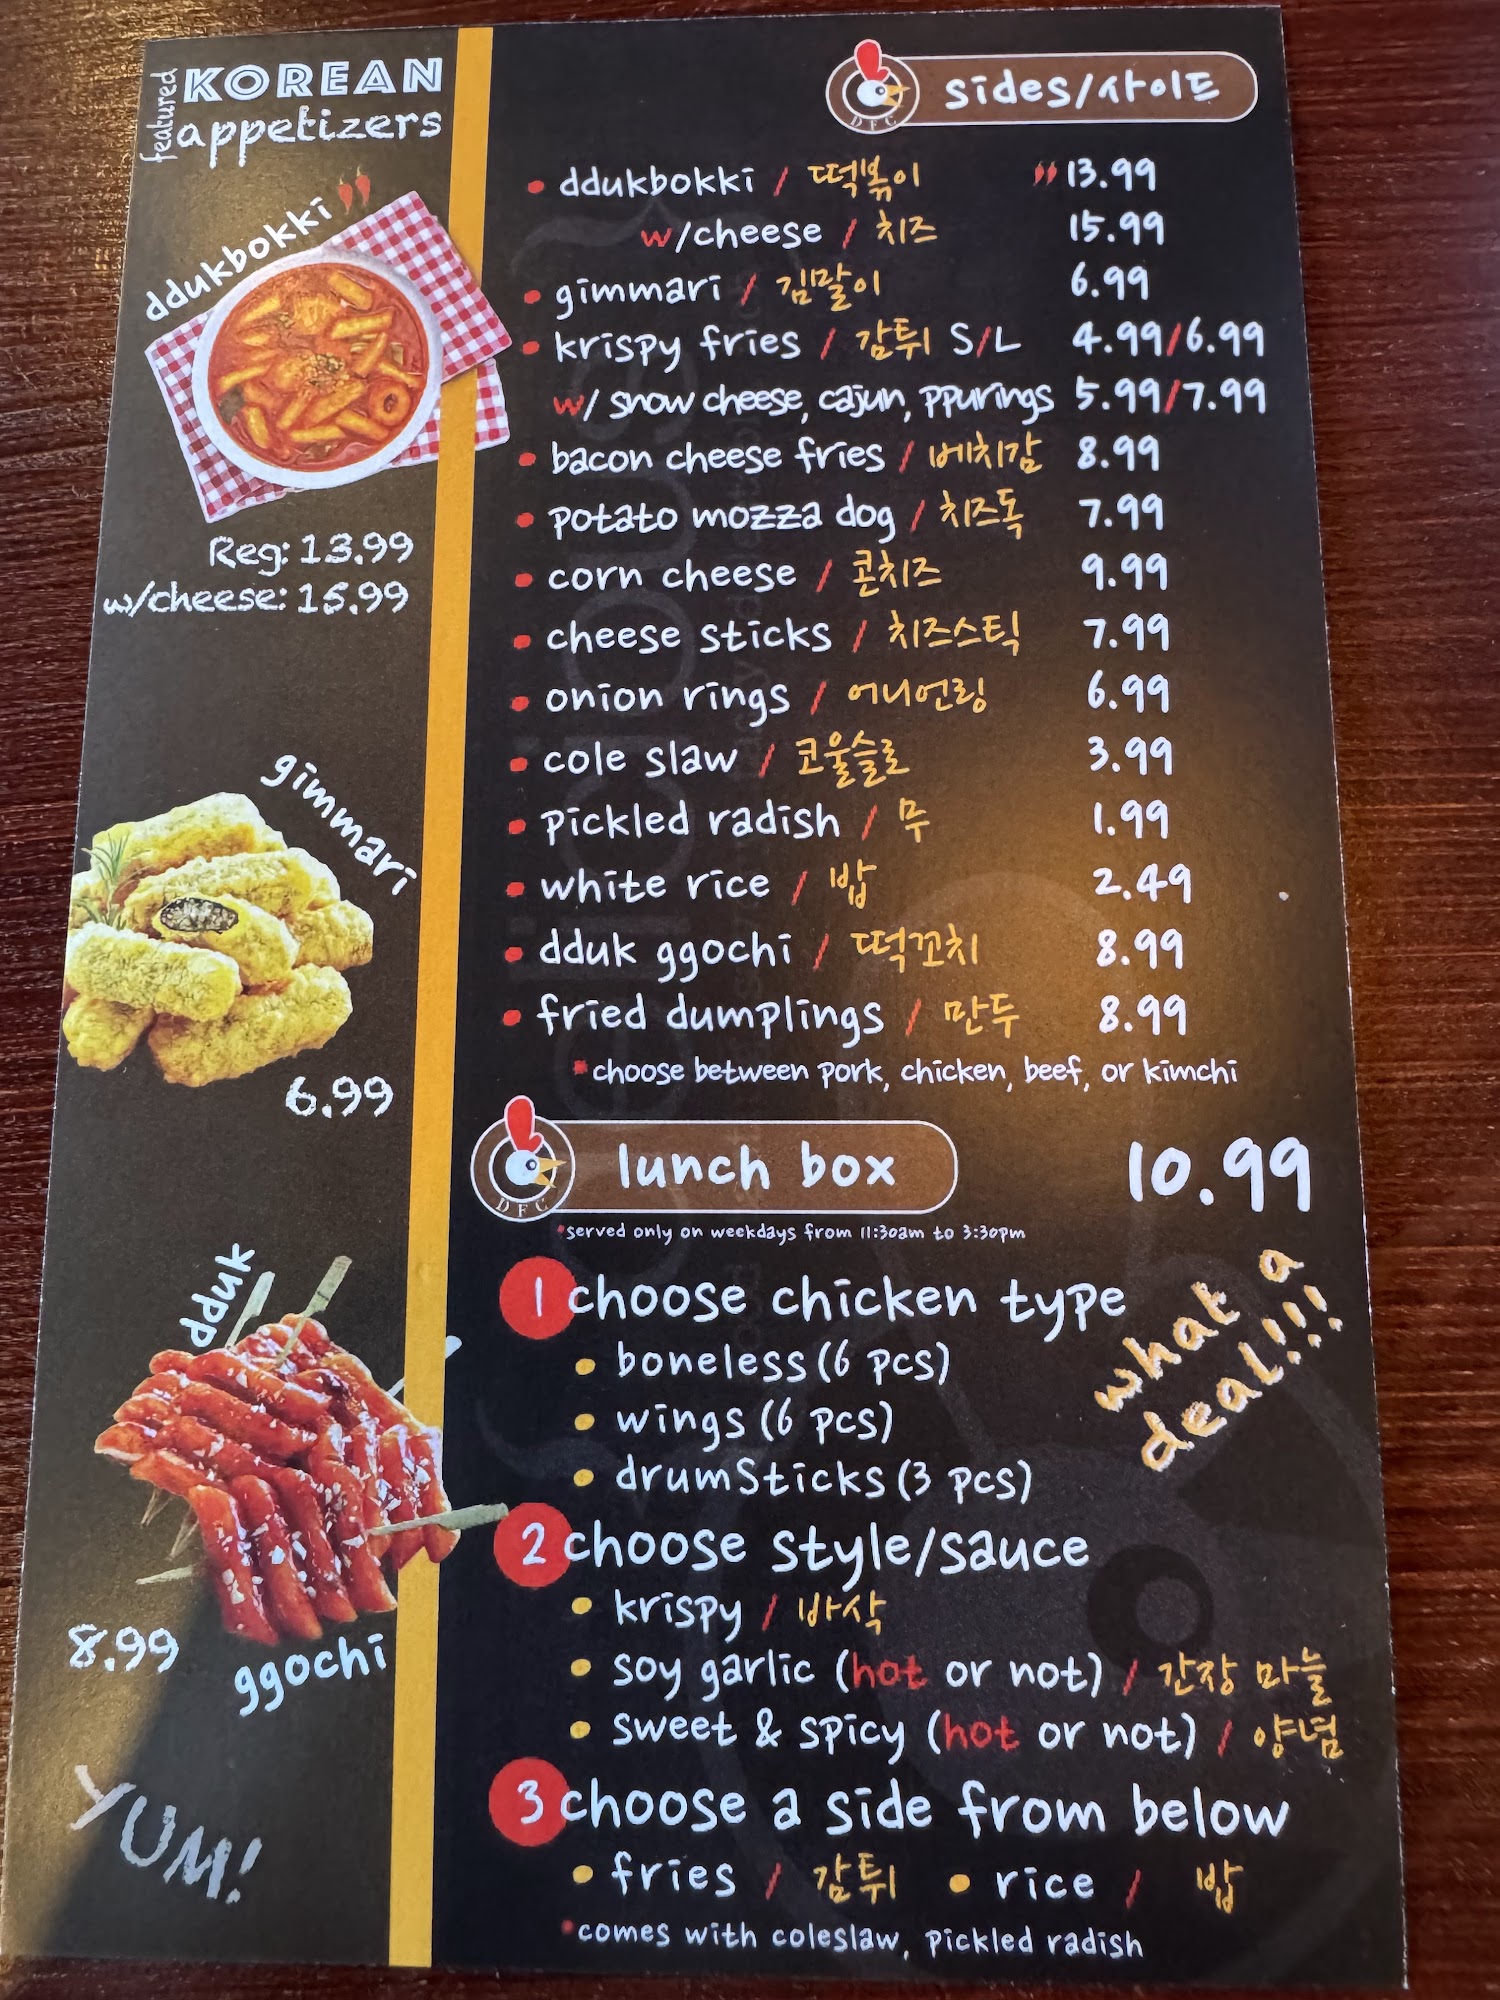 featured
KOREAN
appetizers
ddukbokki
Reg: 13.99
w/cheese: 15.99
gimmari
6.99
dduk
8.99 ggochi
YUM!
DFC
sides/사이드
• ddukbokki / 떡볶이 13.99
w/cheese / 치즈 15.99
• gimmari / 김말이 6.99
• krispy fries / 감튀 S/L 4.99/6.99
w/ snow cheese, cajun, ppurings 5.99/7.99
• bacon cheese fries / 베치감 8.99
• potato mozza dog / 치즈독 7.99
• corn cheese / 콘치즈 9.99
• cheese sticks / 치즈스틱 7.99
• onion rings / 어니언링 6.99
• cole slaw / 코울슬로 3.99
• pickled radish / 무 1.99
• white rice / 밥 2.49
• dduk ggochi / 떡꼬치 8.99
• fried dumplings / 만두 8.99
*choose between pork, chicken, beef, or kimchi
DFC
lunch box 10.99
*served only on weekdays from 11:30am to 3:30pm
what a
deal!!!
1 choose chicken type
• boneless (6 pcs)
• wings (6 pcs)
• drumSticks (3 pcs)
2 choose style/sauce
• krispy / 바삭
• soy garlic (hot or not) / 간장 마늘
• sweet & spicy (hot or not) / 양념
3 choose a side from below
• fries / 감튀 • rice / 밥
*comes with coleslaw, pickled radish